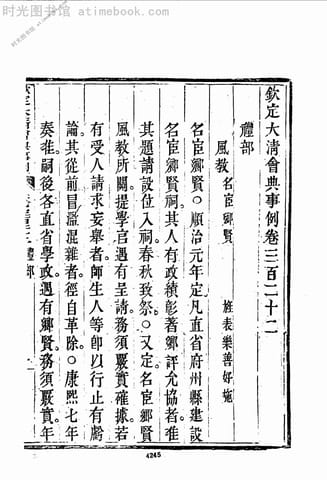 时光图书馆 - atimebook.com
欽定大清會典事例卷三百二十二
禮部
風教 名宦鄉賢 旌表樂善好施
名宦鄉賢○順治元年定凡直省府州縣建設
名宦鄉賢祠其人有政積彰著鄉評允協者准
其題請設位入祠春秋致祭○又定名宦鄉賢
風教所關提學官遇有呈請務須覈實確據若
有受人請求妄舉者師生人等卽以行止有虧
論其從前冒濫混雜者徑自革除○康熙七年
奏准嗣後各直省學政遇有鄉賢務須覈實年
禮部
4245